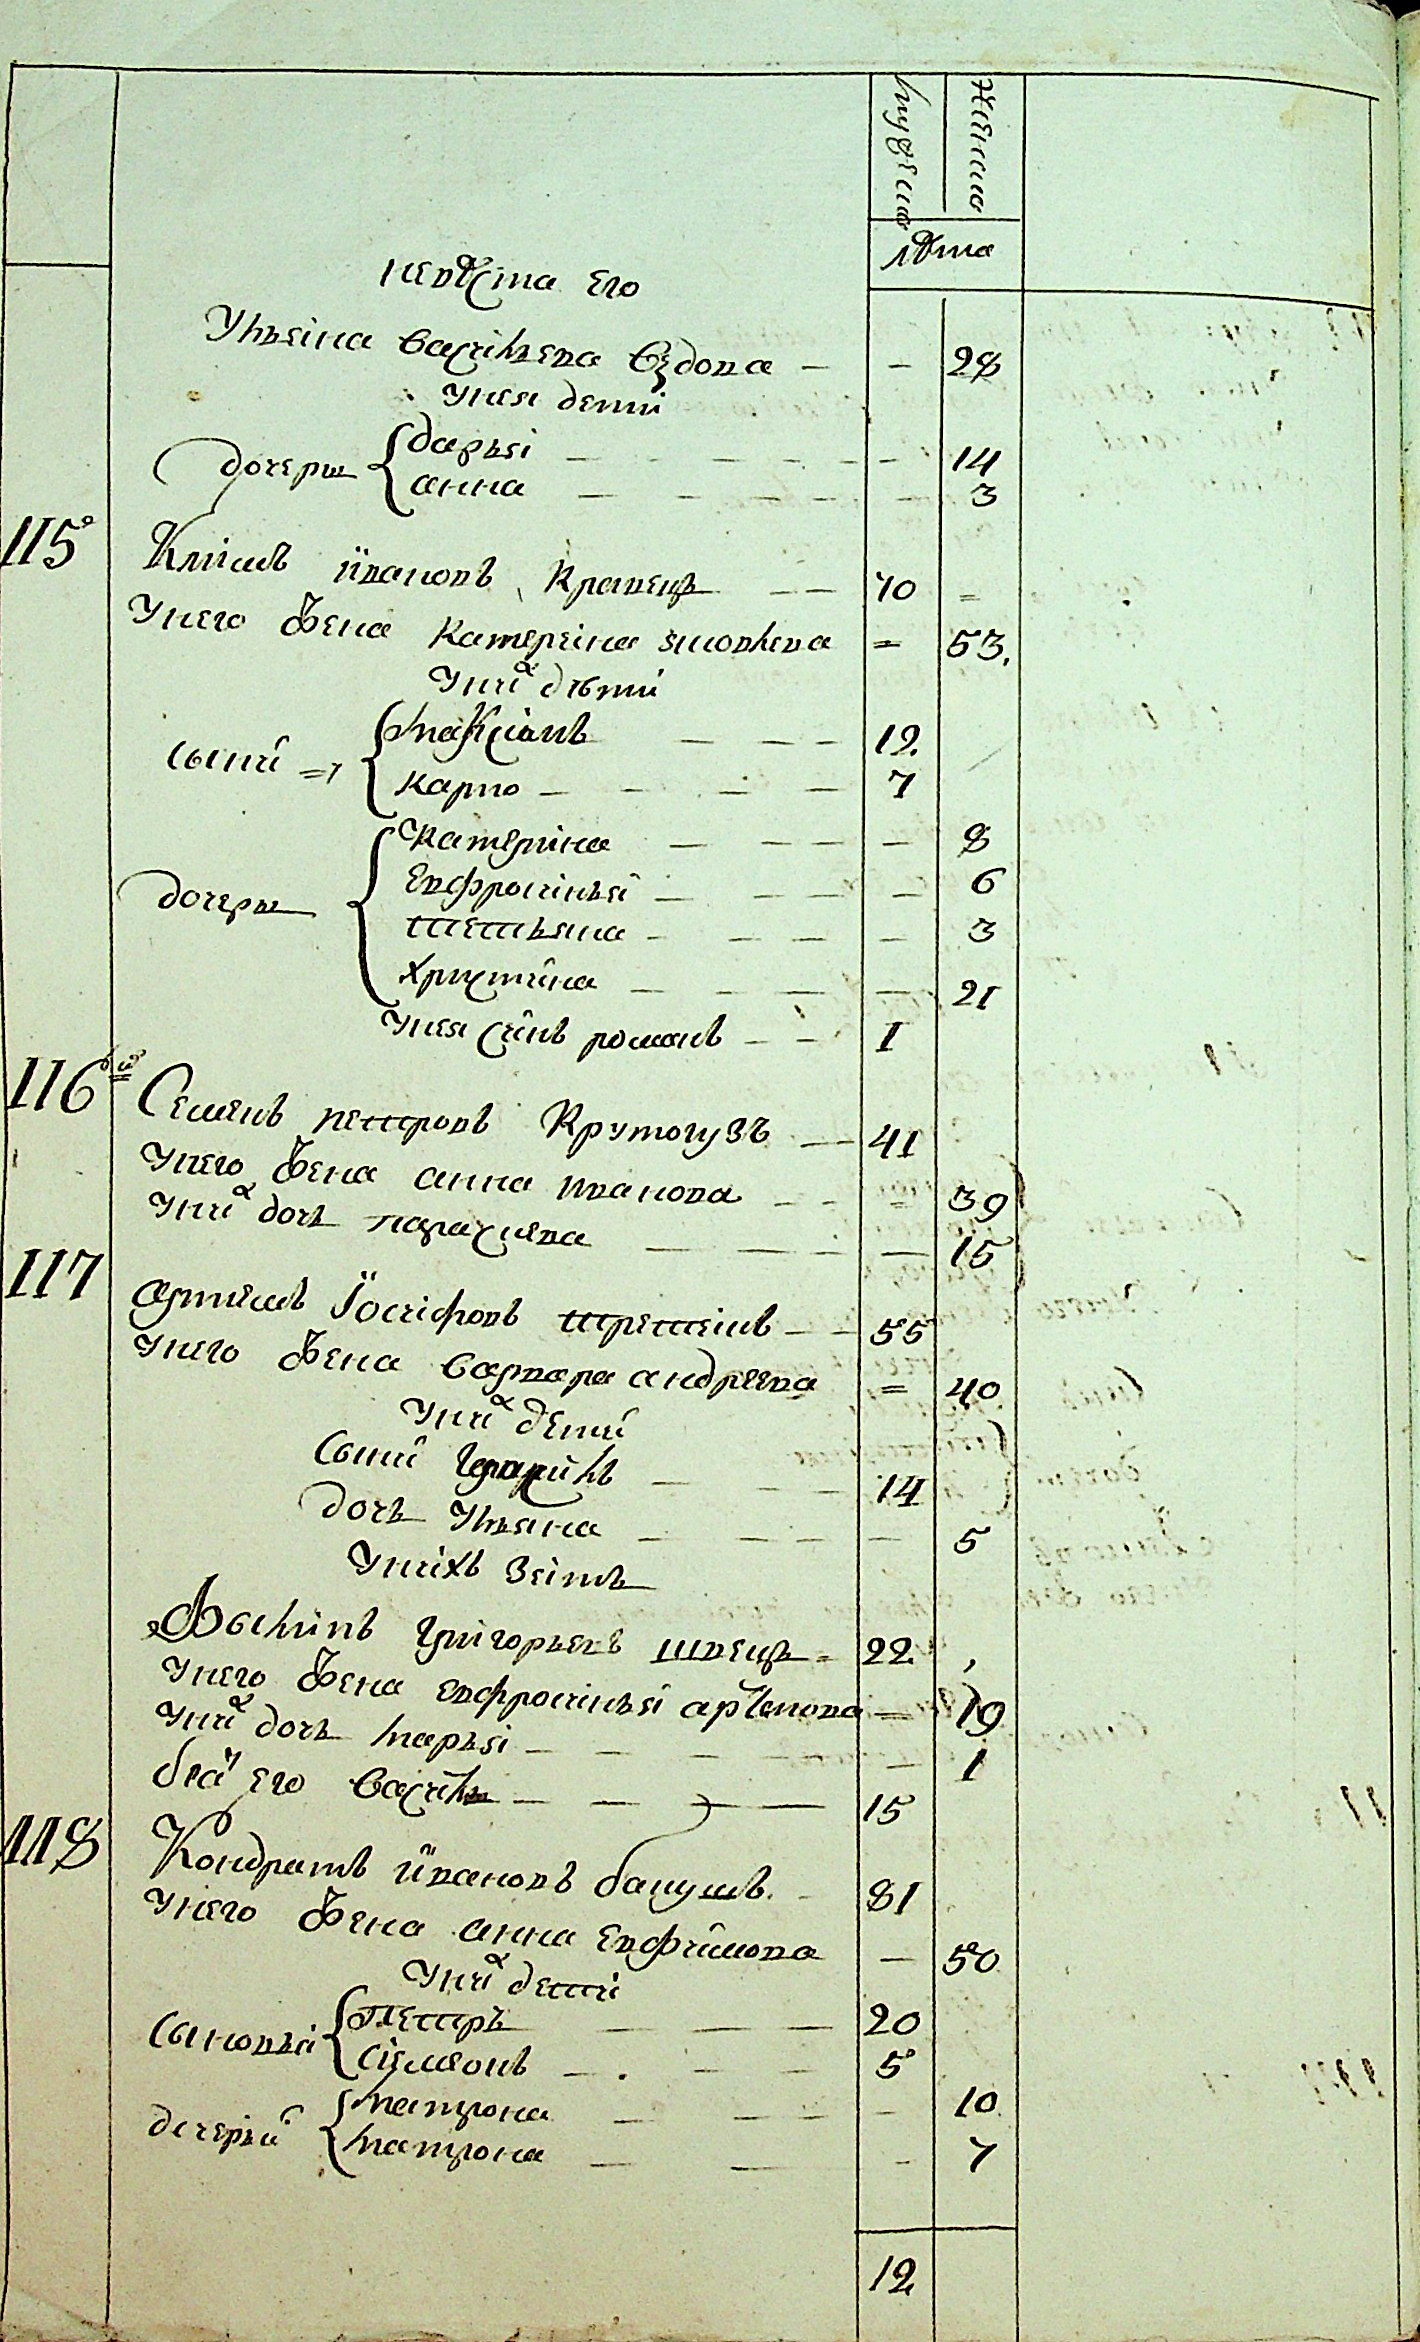 мужеска
женска
лѣта
невѣста его
Ульяна василіева вдова — — 28
Унея дети
дочеры
дарья — — — — — — 14
анна — — — — — 3
115
Климъ ивановъ Кравецъ — — 70 =
Унего жена катерина = 53.
Унихъ дѣти
сыни
максимъ — — — 12
карпо — — — — 7
дочеры
катерина — — — — 8
Евфросинья — — — — 6
тетьяна — — — — 3
христина — — — — — 21
Унея синъ романъ — — 1
116
Семенъ петровъ Крутогузъ — 41
Унего жена анна иванова — — = 39
Унихъ дочь параскева — — — — 15
117
Артемъ Іосифовъ третеікъ — — 55
Унего жена варвара андреева = 40
Унихъ дети
Сыни — — — 14
дочь Уляна — — — — 5
Унихъ зеіть
Григорьевъ швецъ = 22
Унего жена евфросинья артемова = 19
Унихъ дочь марья — — — — — 1
братъ его василь — — — 15
118
Кондратъ ивановъ бацушъ — 81
Унего жена анна Евфимова — 50
Унихъ дети
сыновья
петръ — — — 20
сімеонъ — — — 5
дочерьи
матрона — — — — 10
матрона — — — 7
12